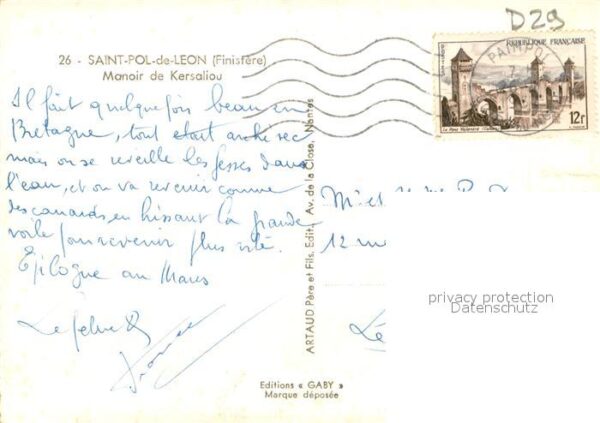 D29
26 - SAINT-POL-de-LEON (Finistère)
Manoir de Kersaliou
Il fait quelquefois beau en
Bretagne, tout etait archi sec
mais on se reveille les fesses dans
l'eau, et on va revenir comme
des canards en hissant la grande
voile pour revenir plus vite.
Epilogue au Mans
ARTAUD Père et Fils. Edit., Av. de la Close. Nantes
Editions « GABY »
Marque déposée
REPUBLIQUE FRANÇAISE
Le Pont Valentré (Cahors)
12f
M. et
12
privacy protection
Datenschutz